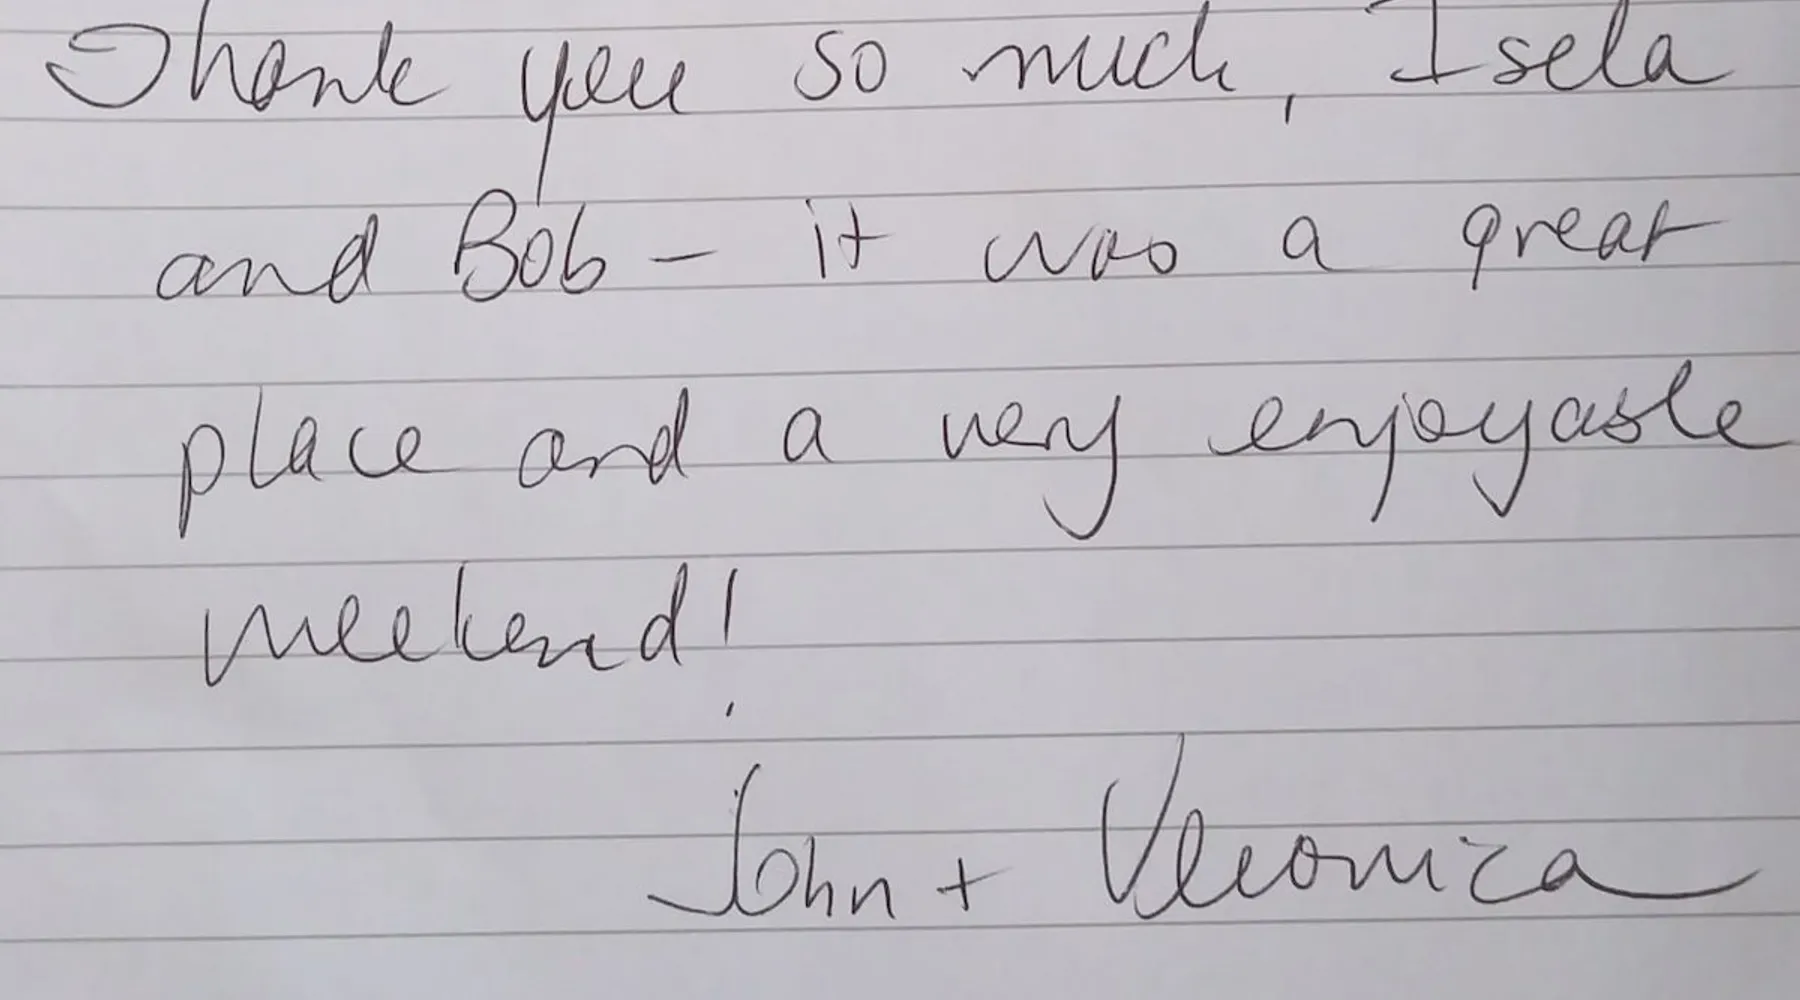 Thank you so much, Isela
and Bob - it was a great
place and a very enjoyable
weekend!
John + Veronica